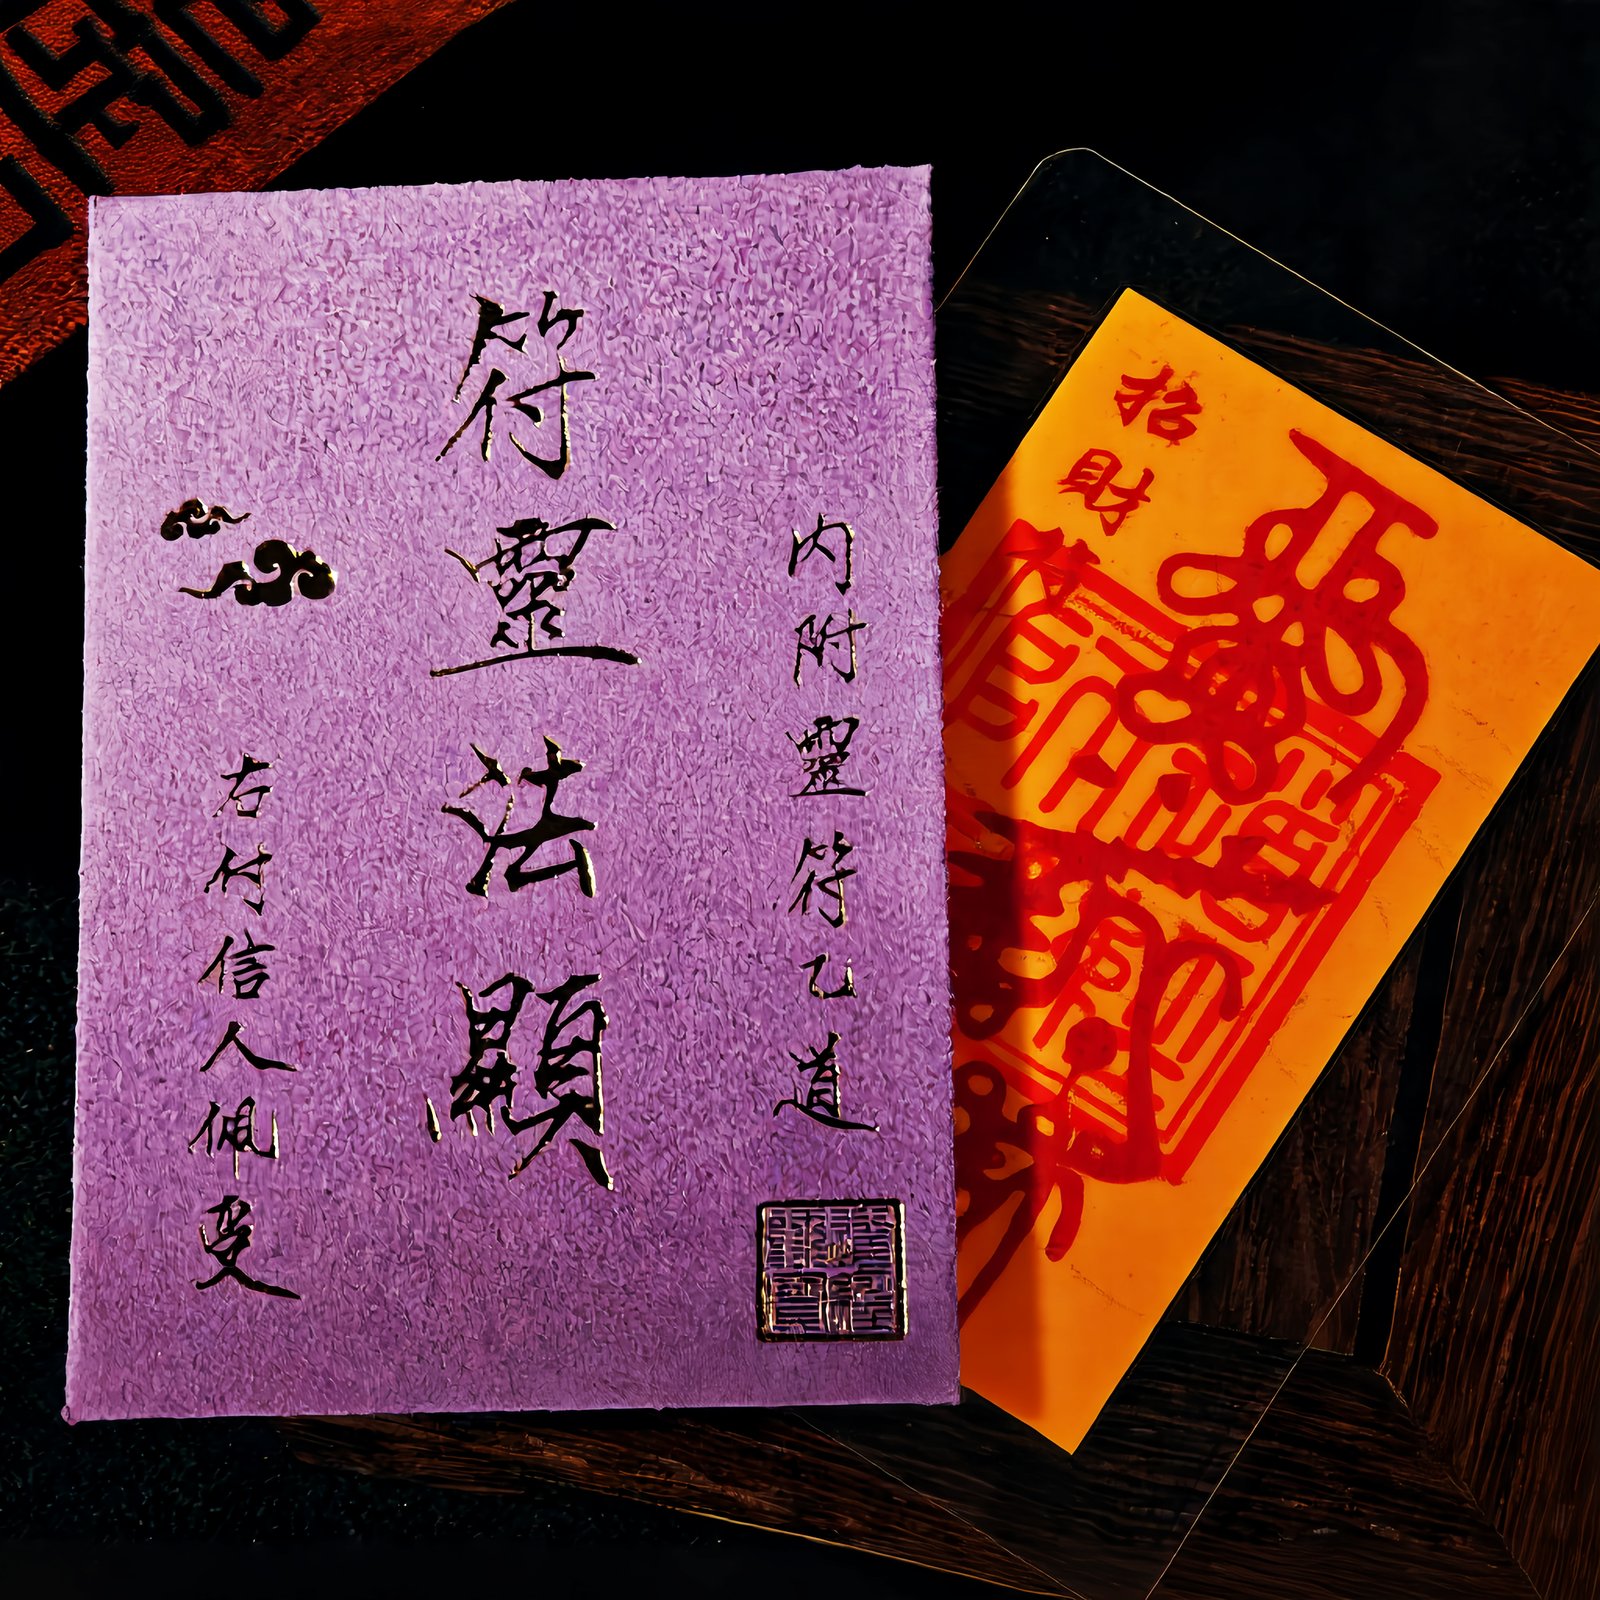 內附靈符乙道
符靈法顯
右付信人佩受
招財符